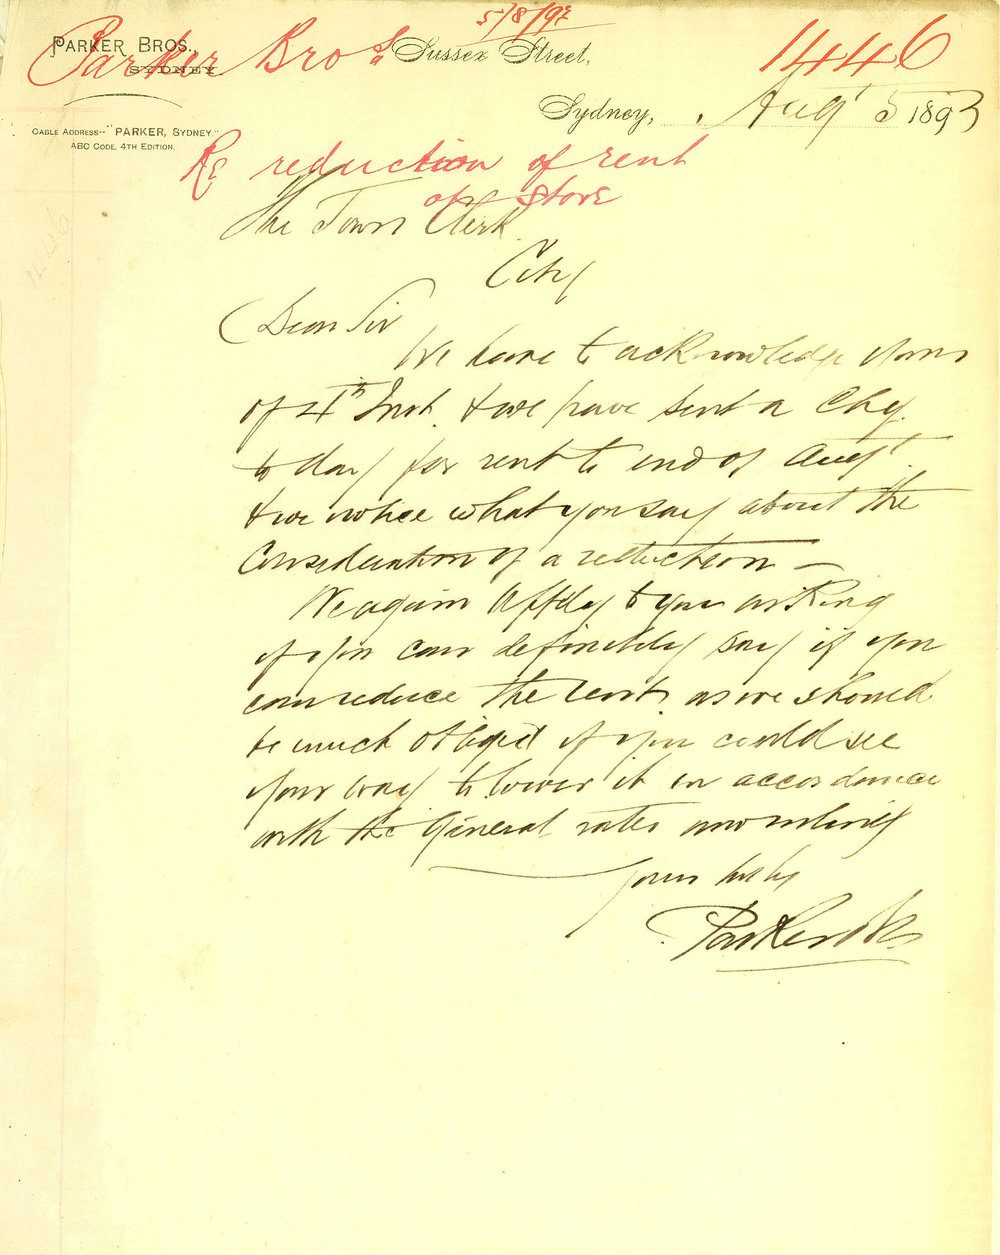 5/8/93
Parker Bros 1446
PARKER BROS.,
SYDNEY
Sussex Street,
Sydney, Augt 5 1893
CABLE ADDRESS-- "PARKER, SYDNEY."
ABC CODE, 4TH EDITION.
Re reduction of rent
of store
The Town Clerk
City
Dear Sir
We have to acknowledge yours
of 4th Inst. & we have sent a Chq.
to day for rent to end of Augt.
& we notice what you say about the
Consideration of a reduction —
We again apply to you asking
if you can definitely say if you
can reduce the rent, as we should
be much obliged if you could see
your way to lower it in accordance
with the general rates now ruling
Yours truly
Parker Bros